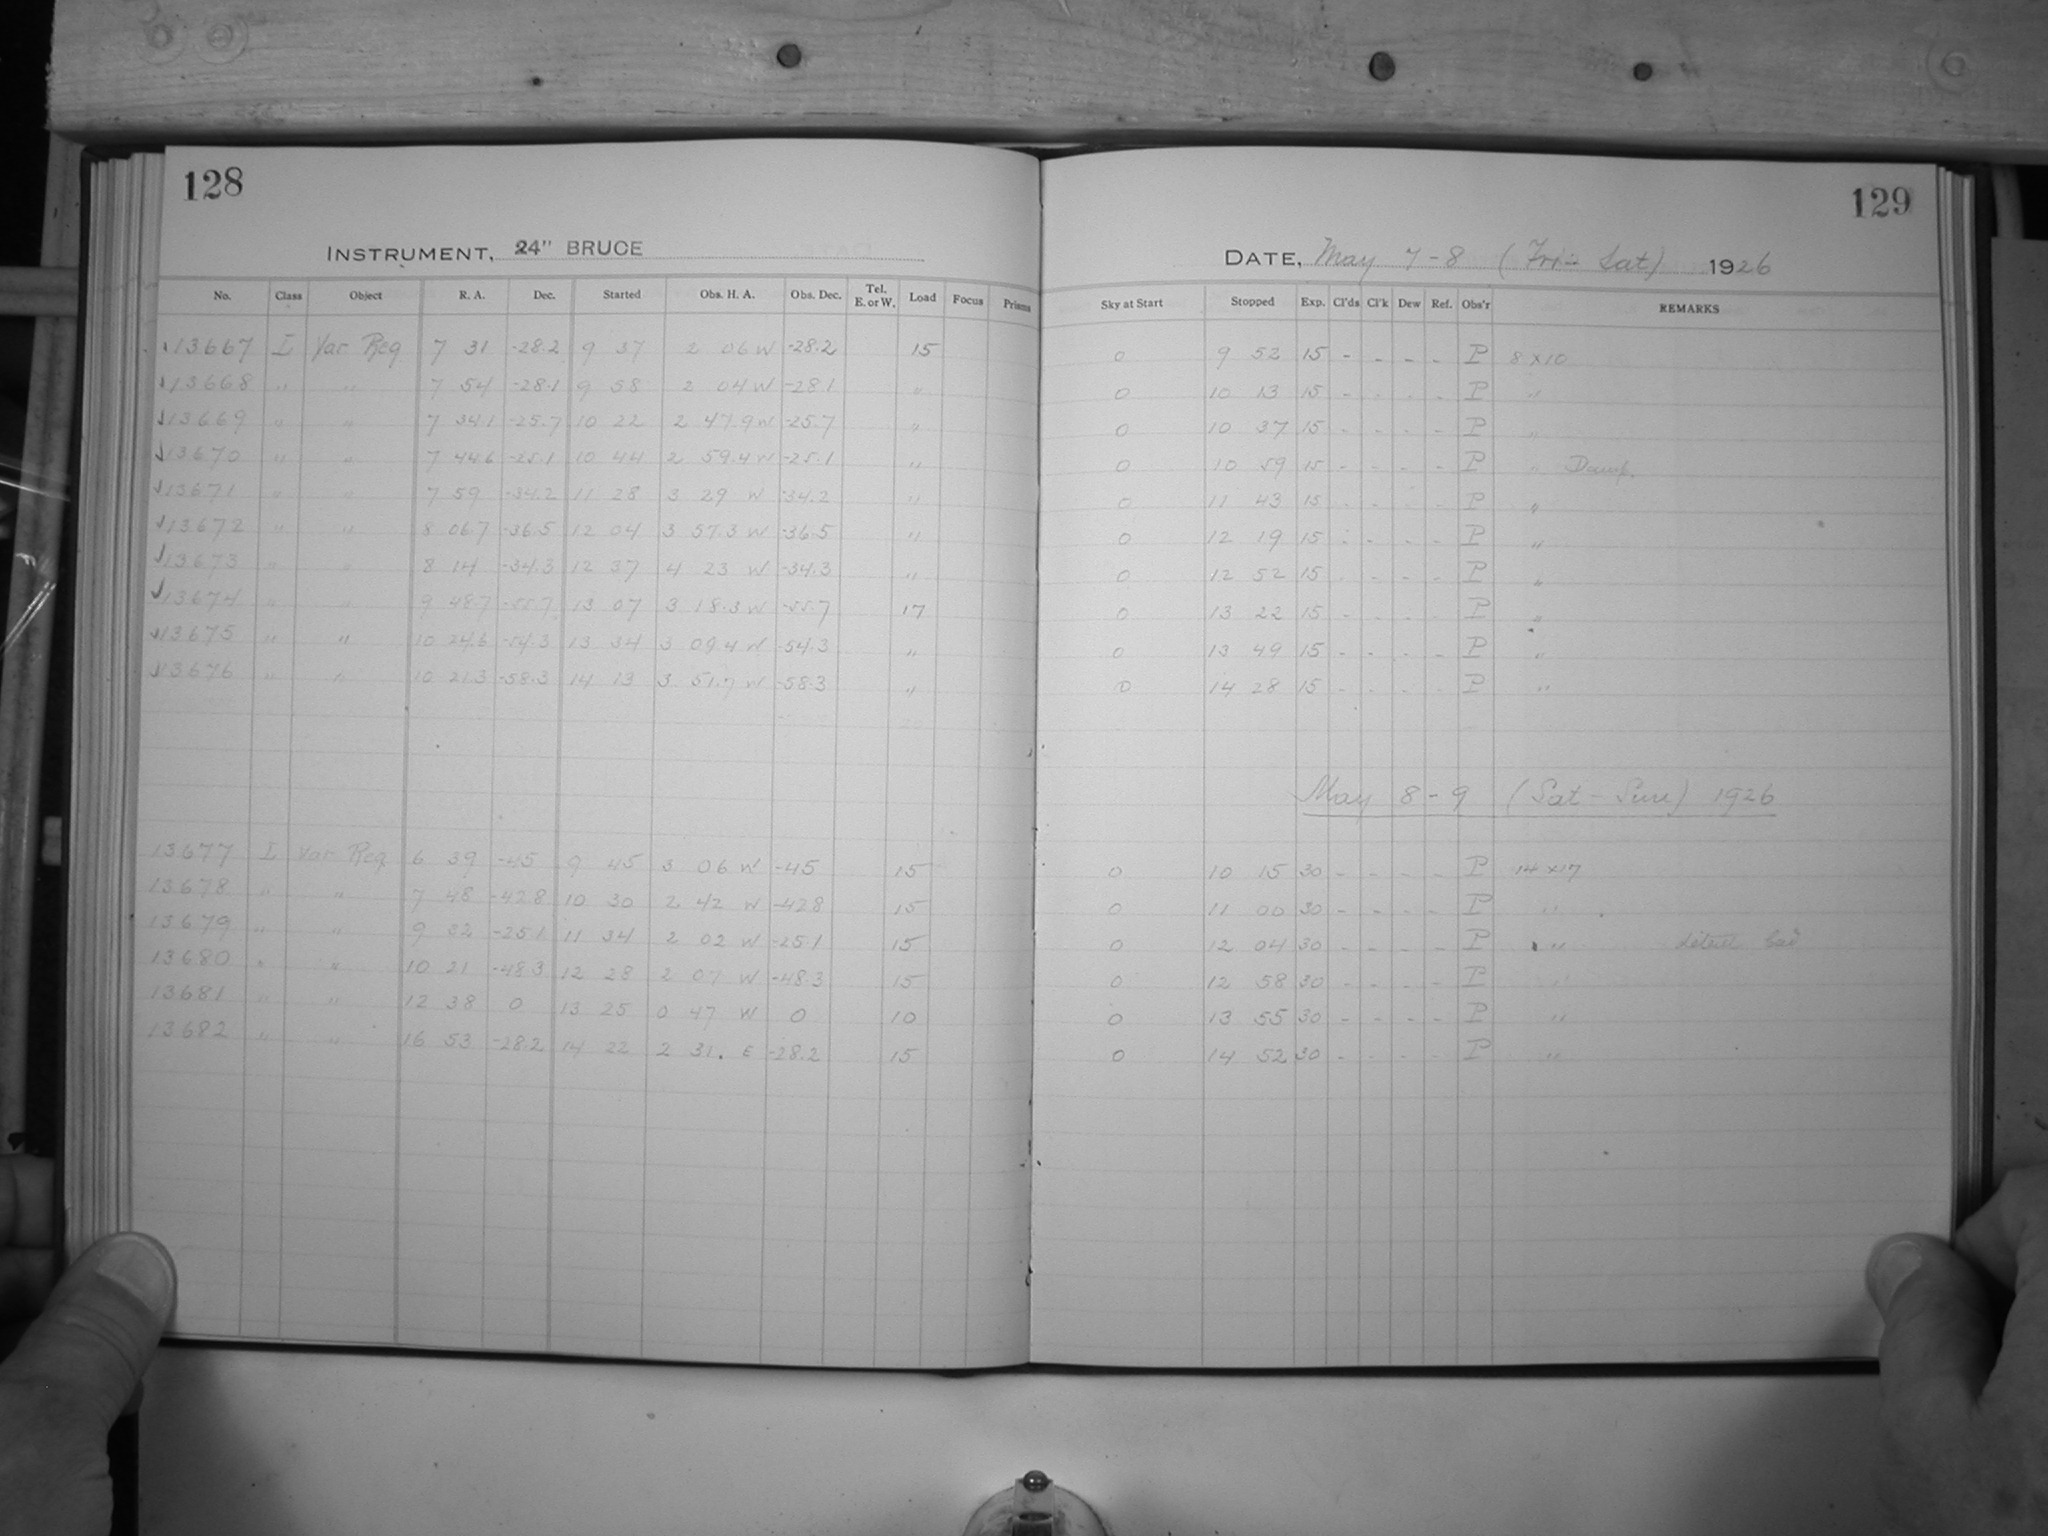 128
129
INSTRUMENT, 24" BRUCE
DATE, May 7-8 (Fri - Sat) 1926
No. Class Object R. A. Dec. Started Obs. H. A. Obs. Dec. Tel. E. or W. Load Focus Prisms Sky at Start Stopped Exp. Cl'ds Cl'k Dew Ref. Obs'r REMARKS
✓13667 I Var Reg 7 31 -28.2 9 37 2 06 W -28.2 15 0 9 52 15 - - - - P 8 x 10
✓13668 " " 7 54 -28.1 9 58 2 04 W -28.1 " 0 10 13 15 - - - - P "
✓13669 " " 7 34.1 -25.7 10 22 2 47.9 W -25.7 " 0 10 37 15 - - - - P "
✓13670 " " 7 44.6 -25.1 10 44 2 59.4 W -25.1 " 0 10 59 15 - - - - P " Damp.
✓13671 " " 7 59 -34.2 11 28 3 29 W -34.2 " 0 11 43 15 - - - - P "
✓13672 " " 8 06.7 -36.5 12 04 3 57.3 W -36.5 " 0 12 19 15 - - - - P "
✓13673 " " 8 14 -34.3 12 37 4 23 W -34.3 " 0 12 52 15 - - - - P "
✓13674 " " 9 48.7 -55.7 13 07 3 18.3 W -55.7 17 0 13 22 15 - - - - P "
✓13675 " " 10 24.6 -54.3 13 34 3 09.4 W -54.3 " 0 13 49 15 - - - - P "
✓13676 " " 10 21.3 -58.3 14 13 3 51.7 W -58.3 " 0 14 28 15 - - - - P "
May 8-9 (Sat - Sun) 1926
13677 I Var Reg 6 39 -45 9 45 3 06 W -45 15 0 10 15 30 - - - - P 14 x 17
13678 " " 7 48 -42.8 10 30 2 42 W -42.8 15 0 11 00 30 - - - - P "
13679 " " 9 32 -25.1 11 34 2 02 W -25.1 15 0 12 04 30 - - - - P " bad
13680 " " 10 21 -48.3 12 28 2 07 W -48.3 15 0 12 58 30 - - - - P "
13681 " " 12 38 0 13 25 0 47 W 0 10 0 13 55 30 - - - - P "
13682 " " 16 53 -28.2 14 22 2 31. E -28.2 15 0 14 52 30 - - - - P "